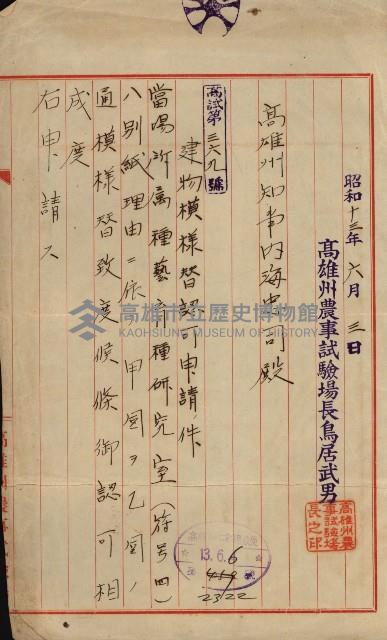 昭和十三年六月三日
高雄州農事試驗場長鳥居武男
高雄州農事試驗場長之印
高雄州知事内海忠司殿
高試第三六九號
建物模様替認可申請ノ件
當場所属種藝育種研究室(符号四)
ハ別紙理由ニ依リ甲図ヲ乙図ノ
通模様替致度候條御認可相
成度
右申請ス
13.6.6
23122
高雄市立歷史博物館
KAOHSIUNG MUSEUM OF HISTORY